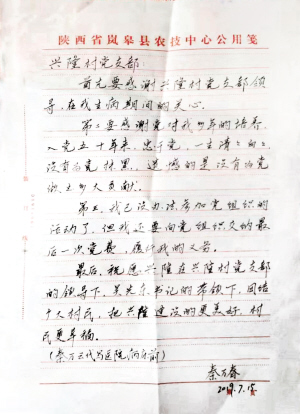 陕西省岚皋县农技中心公用笺
兴隆村党支部:
首先要感谢兴隆村党支部领
导,在我生病期间的关心。
第二要感谢党对我多年的培养,
入党五十年来,忠于党,一生清白,
没有为党抹黑,遗憾的是没有为党
做出多大贡献。
第三,我已没办法参加党组织的
活动了,但我还要向党组织交纳最
后一次党费,履行我的义务。
最后,祝愿兴隆在兴隆村党支部
的领导下,书记的带领下,团结
广大村民,把兴隆建设的更美好,村
民更幸福。
(秦万春代写医院病床前)
秦万春
2019.7.15